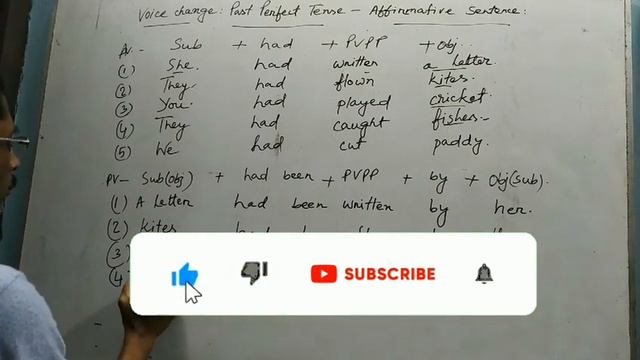 Voice change: Past Perfect Tense - Affirmative Sentence:
AV- Sub + had + PVPP + Obj.
(1) She had written a letter.
(2) They had flown kites.
(3) You had played cricket.
(4) They had caught fishes.
(5) We had cut paddy.
PV- Sub(obj) + had been + PVPP + by + Obj(sub).
(1) A letter had been written by her.
(2) Kites
(3)
(4)
SUBSCRIBE